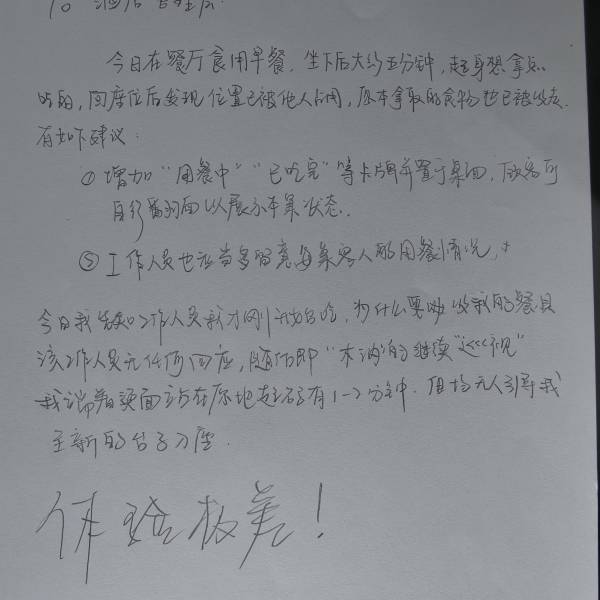 To 酒店管理层:
今日在餐厅食用早餐,坐下后大约五分钟,起身想拿点
吃的,回座位后发现位置已被他人占用,原本拿取的食物也已被收走.
有如下建议:
① 增加“用餐中”“已吃完”等卡牌并置于桌面,顾客可
自行翻面以展示本桌状态.
② 工作人员也应当多留意每桌客人的用餐情况,
今日我告知工作人员我才刚开始吃,为什么要收我的餐具
该工作人员无任何回应,随后即“木讷的继续巡视”
我端着汤面站在原地起码有1-2分钟.但均无人引导我
至新的台子入座.
体验极差!